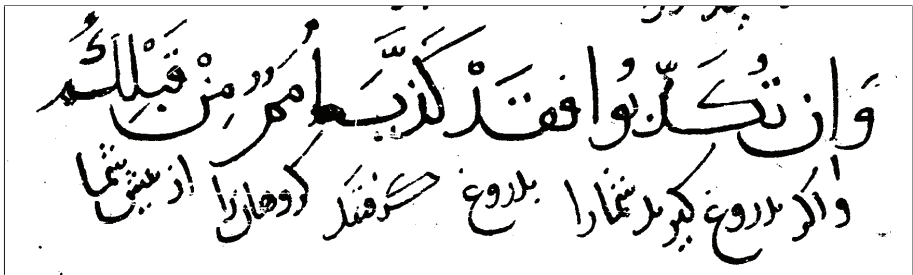 وَاِن تُكَذِّبُوا فقَدْ كَذَّبَ اُمَمٌ مِنْ قَبْلِكُم
واکر بدروغ کیرند شمارا بدروغ کرفتند کروهانرا از پیش شما